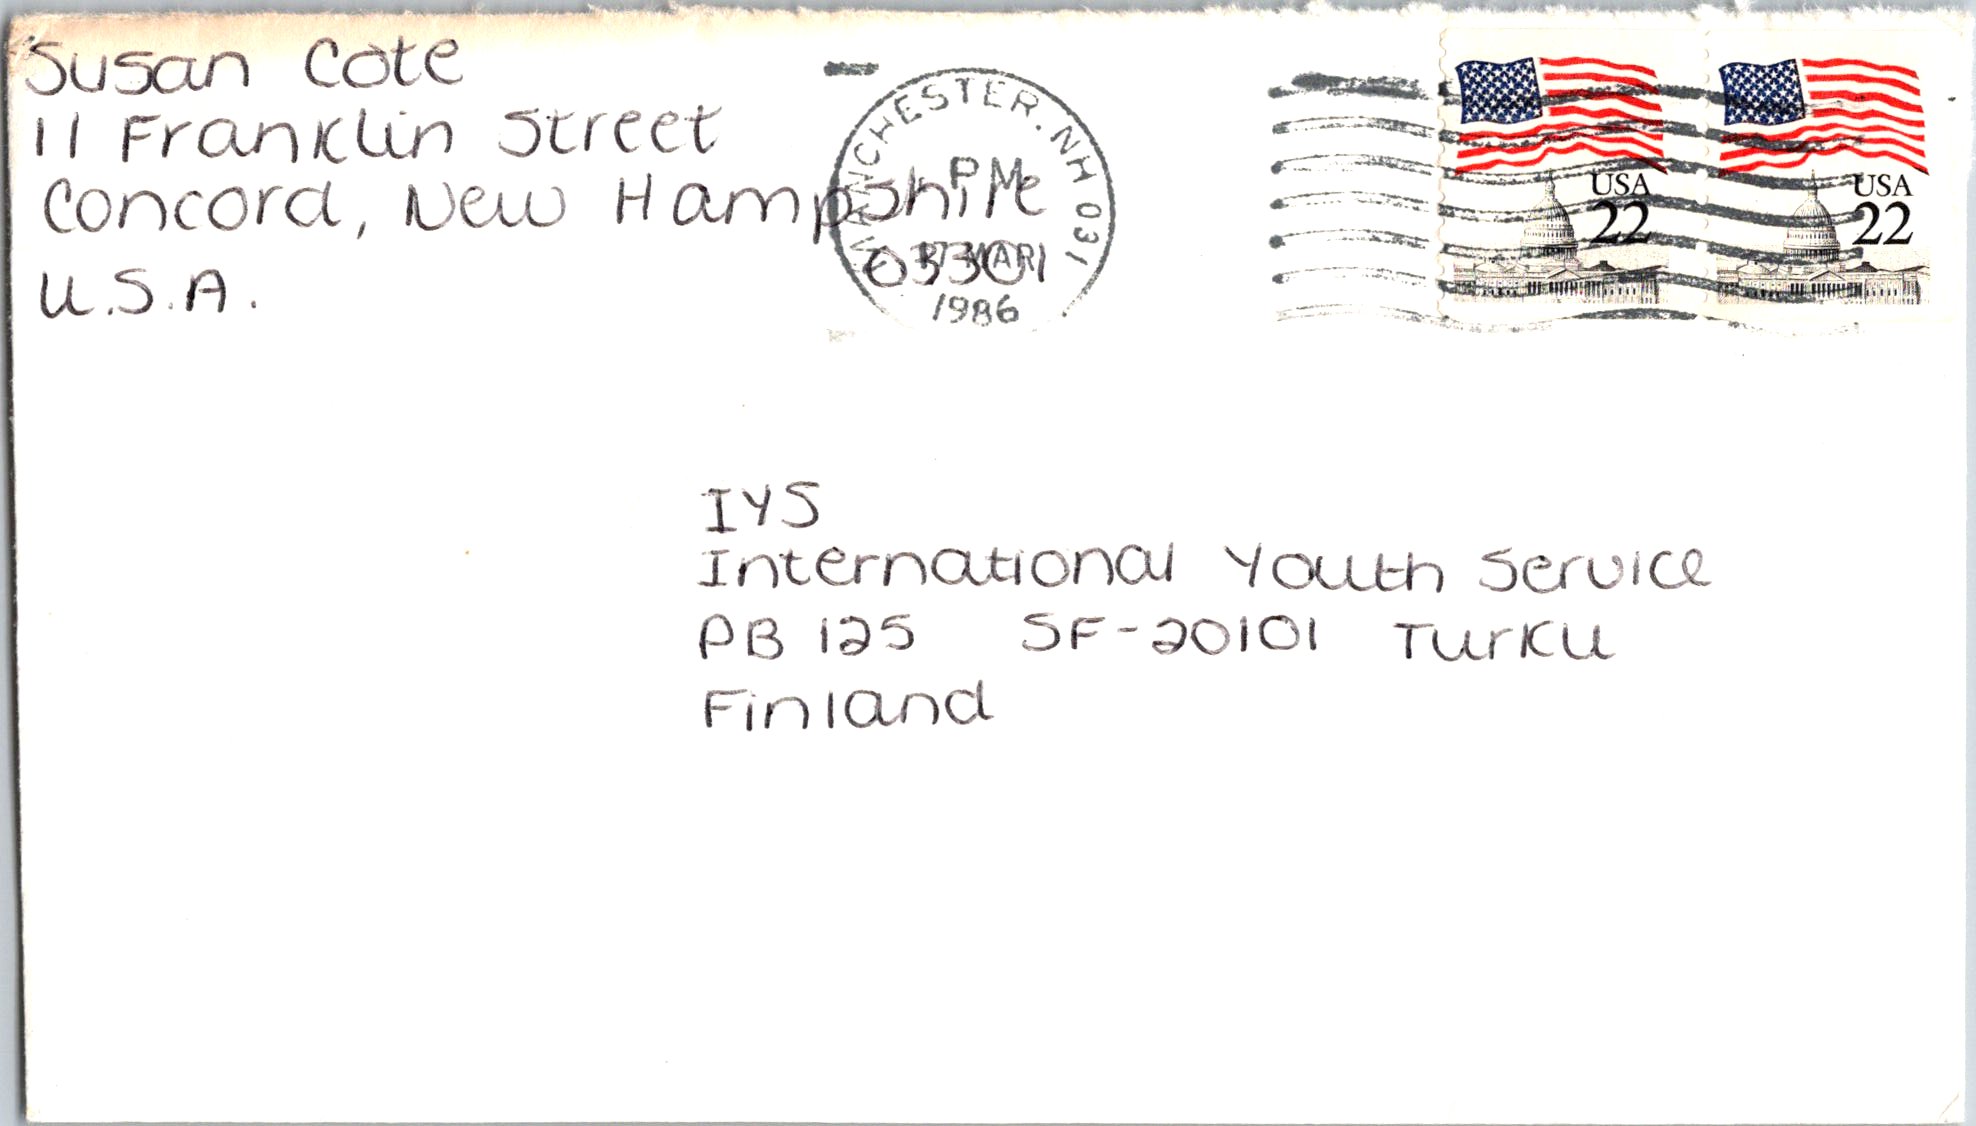 Susan Cote
11 Franklin Street
Concord, New Hampshire
03301
U.S.A.
MANCHESTER. NH 031
PM
MAR
1986
USA
22
USA
22
IYS
International Youth Service
PB 125 SF-20101 Turku
Finland